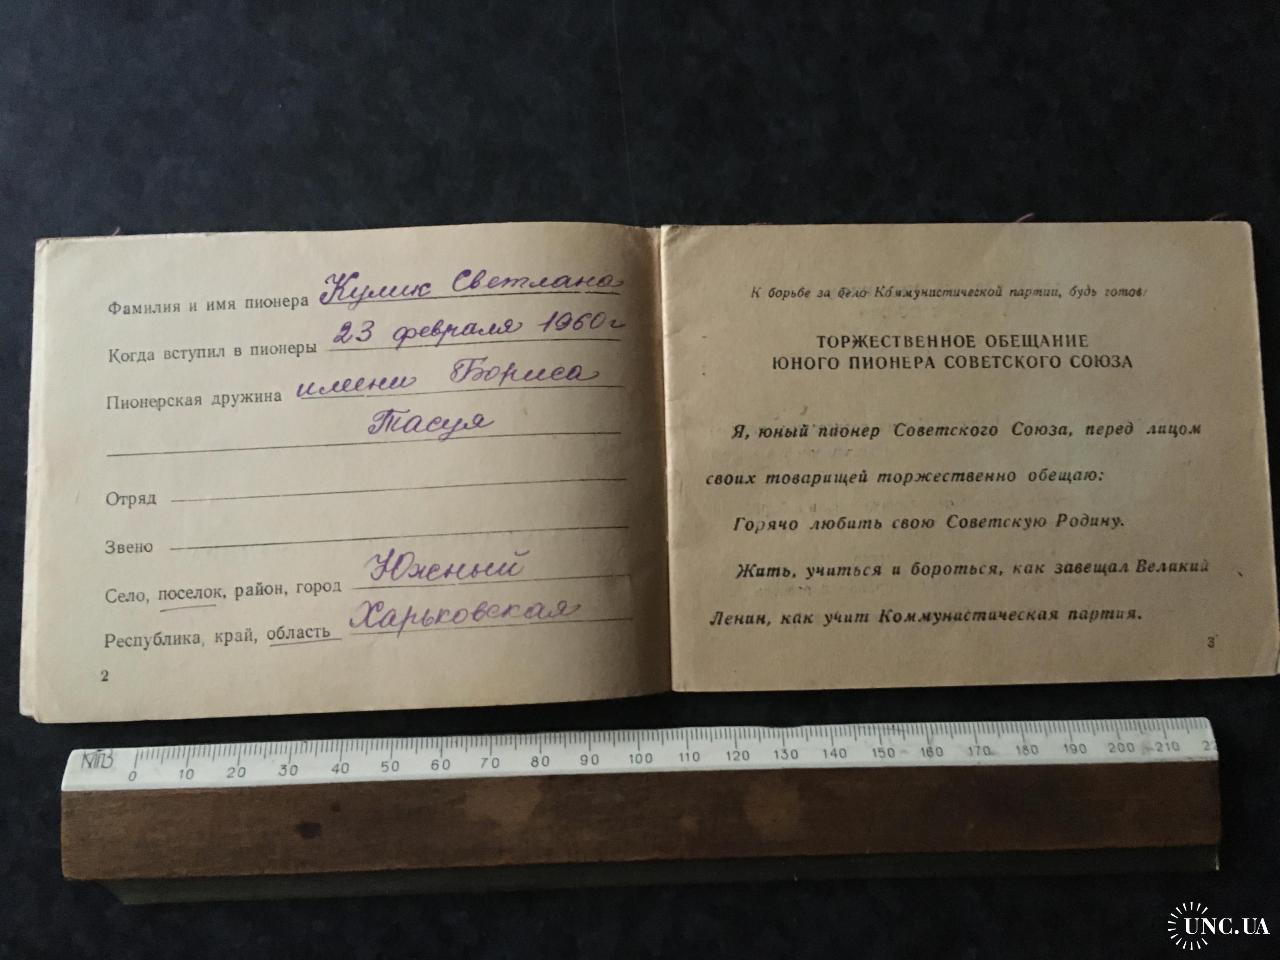 Фамилия и имя пионера Кулик Светлана
Когда вступил в пионеры 23 февраля 1960 г
Пионерская дружина имени Бориса
Тасуя
Отряд
Звено
Село, поселок, район, город Южный
Республика, край, область Харьковская
2
К борьбе за дело Коммунистической партии, будь готов!
ТОРЖЕСТВЕННОЕ ОБЕЩАНИЕ
ЮНОГО ПИОНЕРА СОВЕТСКОГО СОЮЗА
Я, юный пионер Советского Союза, перед лицом
своих товарищей торжественно обещаю:
Горячо любить свою Советскую Родину.
Жить, учиться и бороться, как завещал Великий
Ленин, как учит Коммунистическая партия.
3
0 10 20 30 40 50 60 70 80 90 100 110 120 130 140 150 160 170 180 190 200 210
UNC.UA